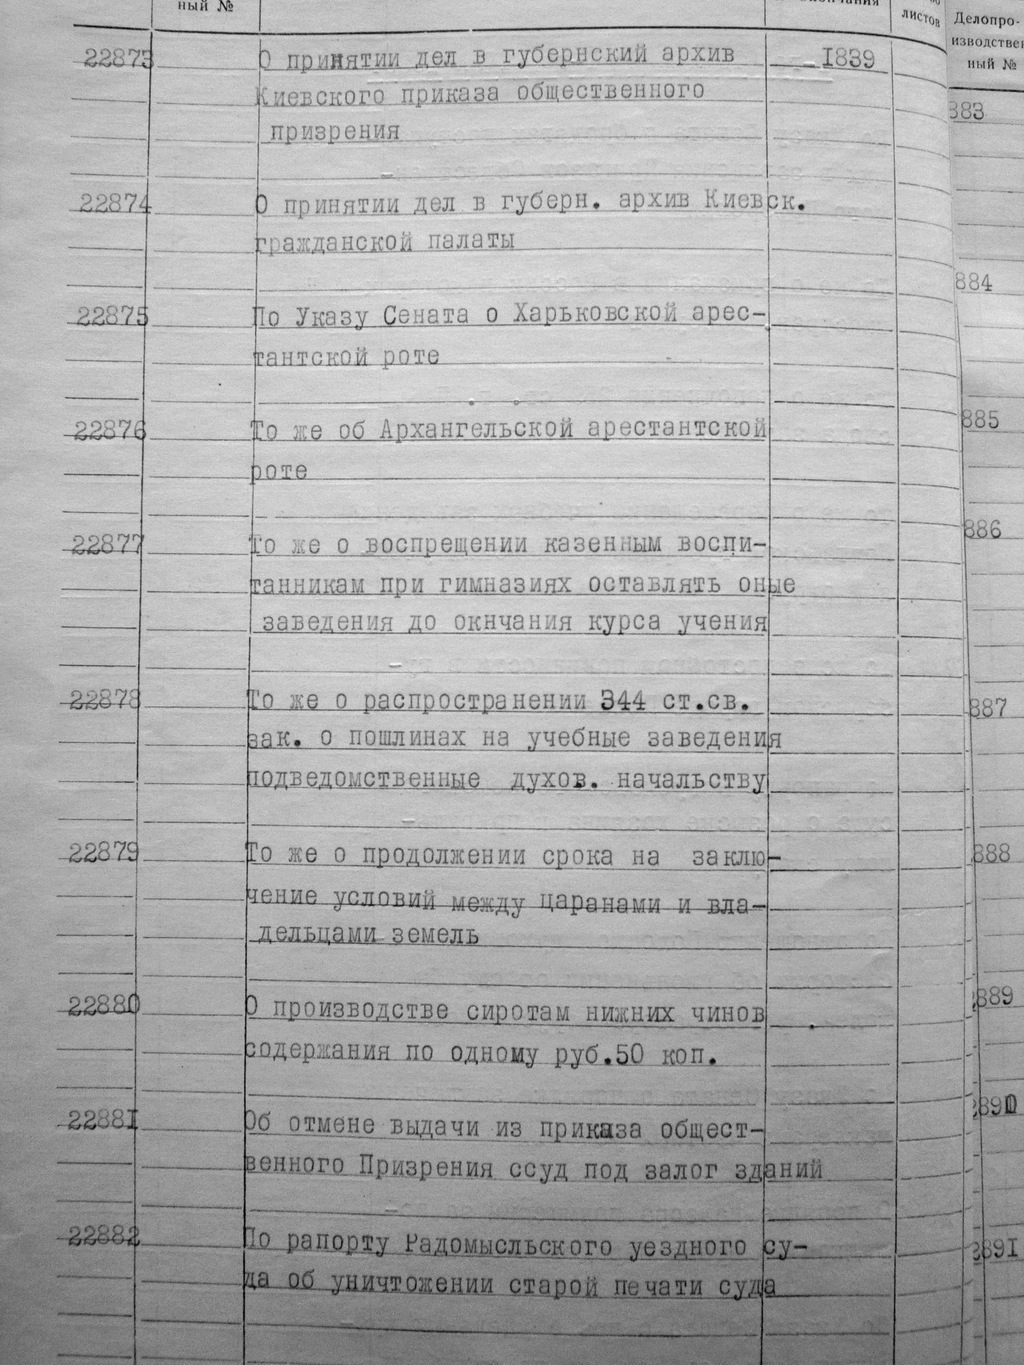 ный №
листов
Делопро-
изводствен
ный №
22873 О принятии дел в губернский архив 1839
Киевского приказа общественного
призрения
22874 О принятии дел в губерн. архив Киевск.
гражданской палаты
22875 По Указу Сената о Харьковской арес-
тантской роте
22876 То же об Архангельской арестантской
роте
22877 То же о воспрещении казенным воспи-
танникам при гимназиях оставлять оные
заведения до окнчания курса учения
22878 То же о распространении 344 ст.св.
зак. о пошлинах на учебные заведения
подведомственные духов. начальству
22879 То же о продолжении срока на заклю-
чение условий между царанами и вла-
дельцами земель
22880 О производстве сиротам нижних чинов
содержания по одному руб.50 коп.
22881 Об отмене выдачи из приказа общест-
венного Призрения ссуд под залог зданий
22882 По рапорту Радомысльского уездного су-
да об уничтожении старой печати суда
883
884
885
886
887
888
2889
2890
2891